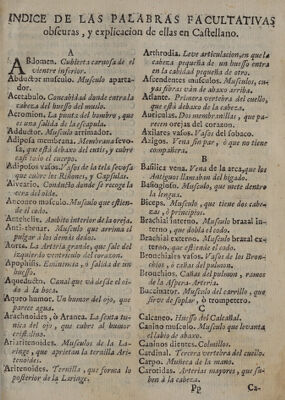 INDICE DE LAS PALABRAS FACULTATIVAS
obscuras, y explicacion de ellas en Castellano.
A
ABdomen. Cubierta carnosa de el
vientre inferior.
Abductor musculo. Musculo aparta-
dor.
Acetabulo. Concabidad donde entra la
cabeza del huesso del muslo.
Acromion. La punta del hombro, que
es una salida de la escapula.
Adductor. Musculo arrimador.
Adiposa membrana. Membrana sevo-
sa, que está debaxo del cutis, y cubre
casi todo el cuerpo.
Adiposos vasos. Vasos de la tela sevosa
que cubre los Riñones, y Capsulas.
Alveario. Conducto donde se recoge la
cera del oido.
Anconeo musculo. Musculo que estien-
de el codo.
Antehelix. Ambito interior de la oreja.
Anti-thenar. Musculo que arrima el
pulgar a los demás dedos.
Aorta. La Arteria grande, que sale del
izquierdo ventriculo del corazon.
Apophisis. Eminencia, ò salida de un
huesso.
Aqueducto. Canal que vá desde el oi-
do à la boca.
Aqueo humor. Un humor del ojo, que
parece agua.
Arachnoides, ò Aranea. La sexta tu-
nica del ojo, que cubre al humor
cristalino.
Aritaritenoides. Musculos de la La-
ringe, que aprietan la ternilla Ari-
tenoides.
Aritenoides. Ternilla, que forma lo
posterior de la Laringe.
Arthrodia. Leve articulacion, en que la
cabeza pequeña de un huesso entra
en la cabidad pequeña de otro.
Ascendentes musculos. Musculos, cu-
yas fibras ván de abaxo arriba.
Atlante. Primera vertebra del cuello,
que está debaxo de la cabeza.
Auriculas. Dos membranillas, que pa-
recen orejas del corazon.
Axilares vasos. Vasos del sobaco.
Azigos. Vena sin par, ò que no tiene
compañera.
B
Basilica vena. Vena de la arca, que los
Antiguos llamaban del higado.
Basioglosso. Musculo, que mete dentro
la lengua.
Biceps. Musculo, que tiene dos cabe-
zas, ò principios.
Brachial interno. Musculo brazal in-
terno, que dobla el codo.
Brachial externo. Musculo brazal ex-
terno, que estiende el codo.
Bronchiales vasos. Vasos de los Bron-
chios, ò cañas del pulmon.
Bronchios. Cañas del pulmon, ramos
de la Aspera-Arteria.
Buccinator. Musculo del carrillo, que
sirve de soplar, ò trompetero.
C
Calcaneo. Huesso del Calcañal.
Canino musculo. Musculo que levanta
el labio de abaxo.
Caninos dientes. Colmillos.
Cardinal. Tercera vertebra del cuello.
Carpo. Muñeca de la mano.
Carotidas. Arterias mayores, que su-
ben à la cabeza.
Pp
Ca-